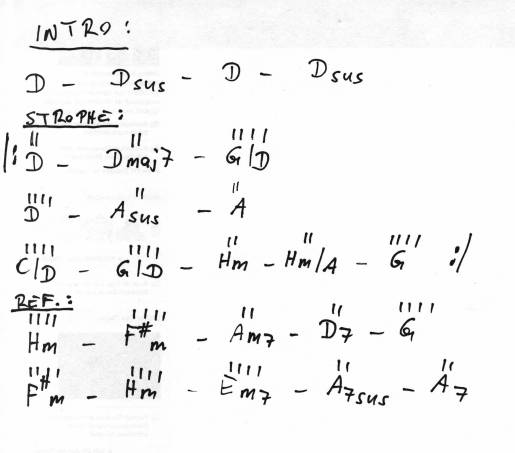 INTRO:
D - Dsus - D - Dsus
STROPHE:
|: D - Dmaj7 - G/D
D - Asus - A
C/D - G/D - Hm - Hm/A - G :|
REF.:
Hm - F#m - Am7 - D7 - G
F#m - Hm - Em7 - A7sus - A7